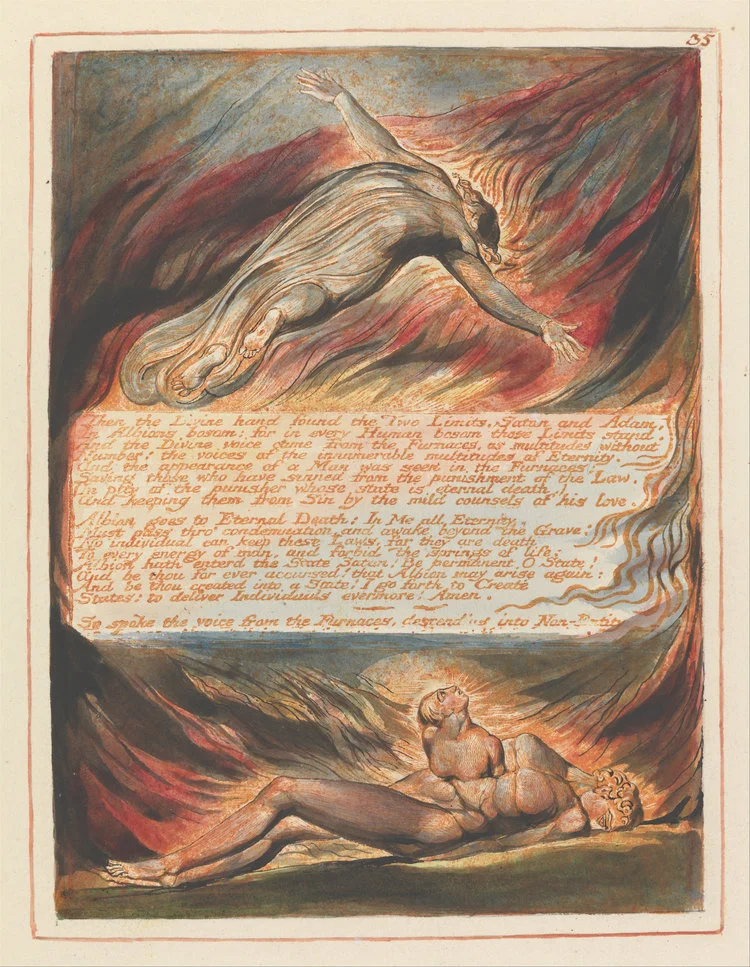 35
Then the Divine hand found the Two Limits, Satan and Adam,
In Albions bosom: for in every Human bosom those Limits stand.
And the Divine voice came from the Furnaces, as multitudes without
Number! the voices of the innumerable multitudes of Eternity.
And the appearance of a Man was seen in the Furnaces;
Saving those who have sinned from the punishment of the Law,
In pity of the punisher whose state is eternal death,
And keeping them from Sin by the mild counsels of his love.
Albion goes to Eternal Death: In Me all Eternity,
Must pass thro' condemnation, and awake beyond the Grave:
No individual can keep these Laws, for they are death
To every energy of man, and forbid the springs of life;
Albion hath enterd the State Satan! Be permanent O State!
And be thou for ever accursed! that Albion may arise again:
And be thou created into a State! I go forth to Create
States: to deliver Individuals evermore! Amen.
So spoke the voice from the Furnaces, descending into Non-Entity